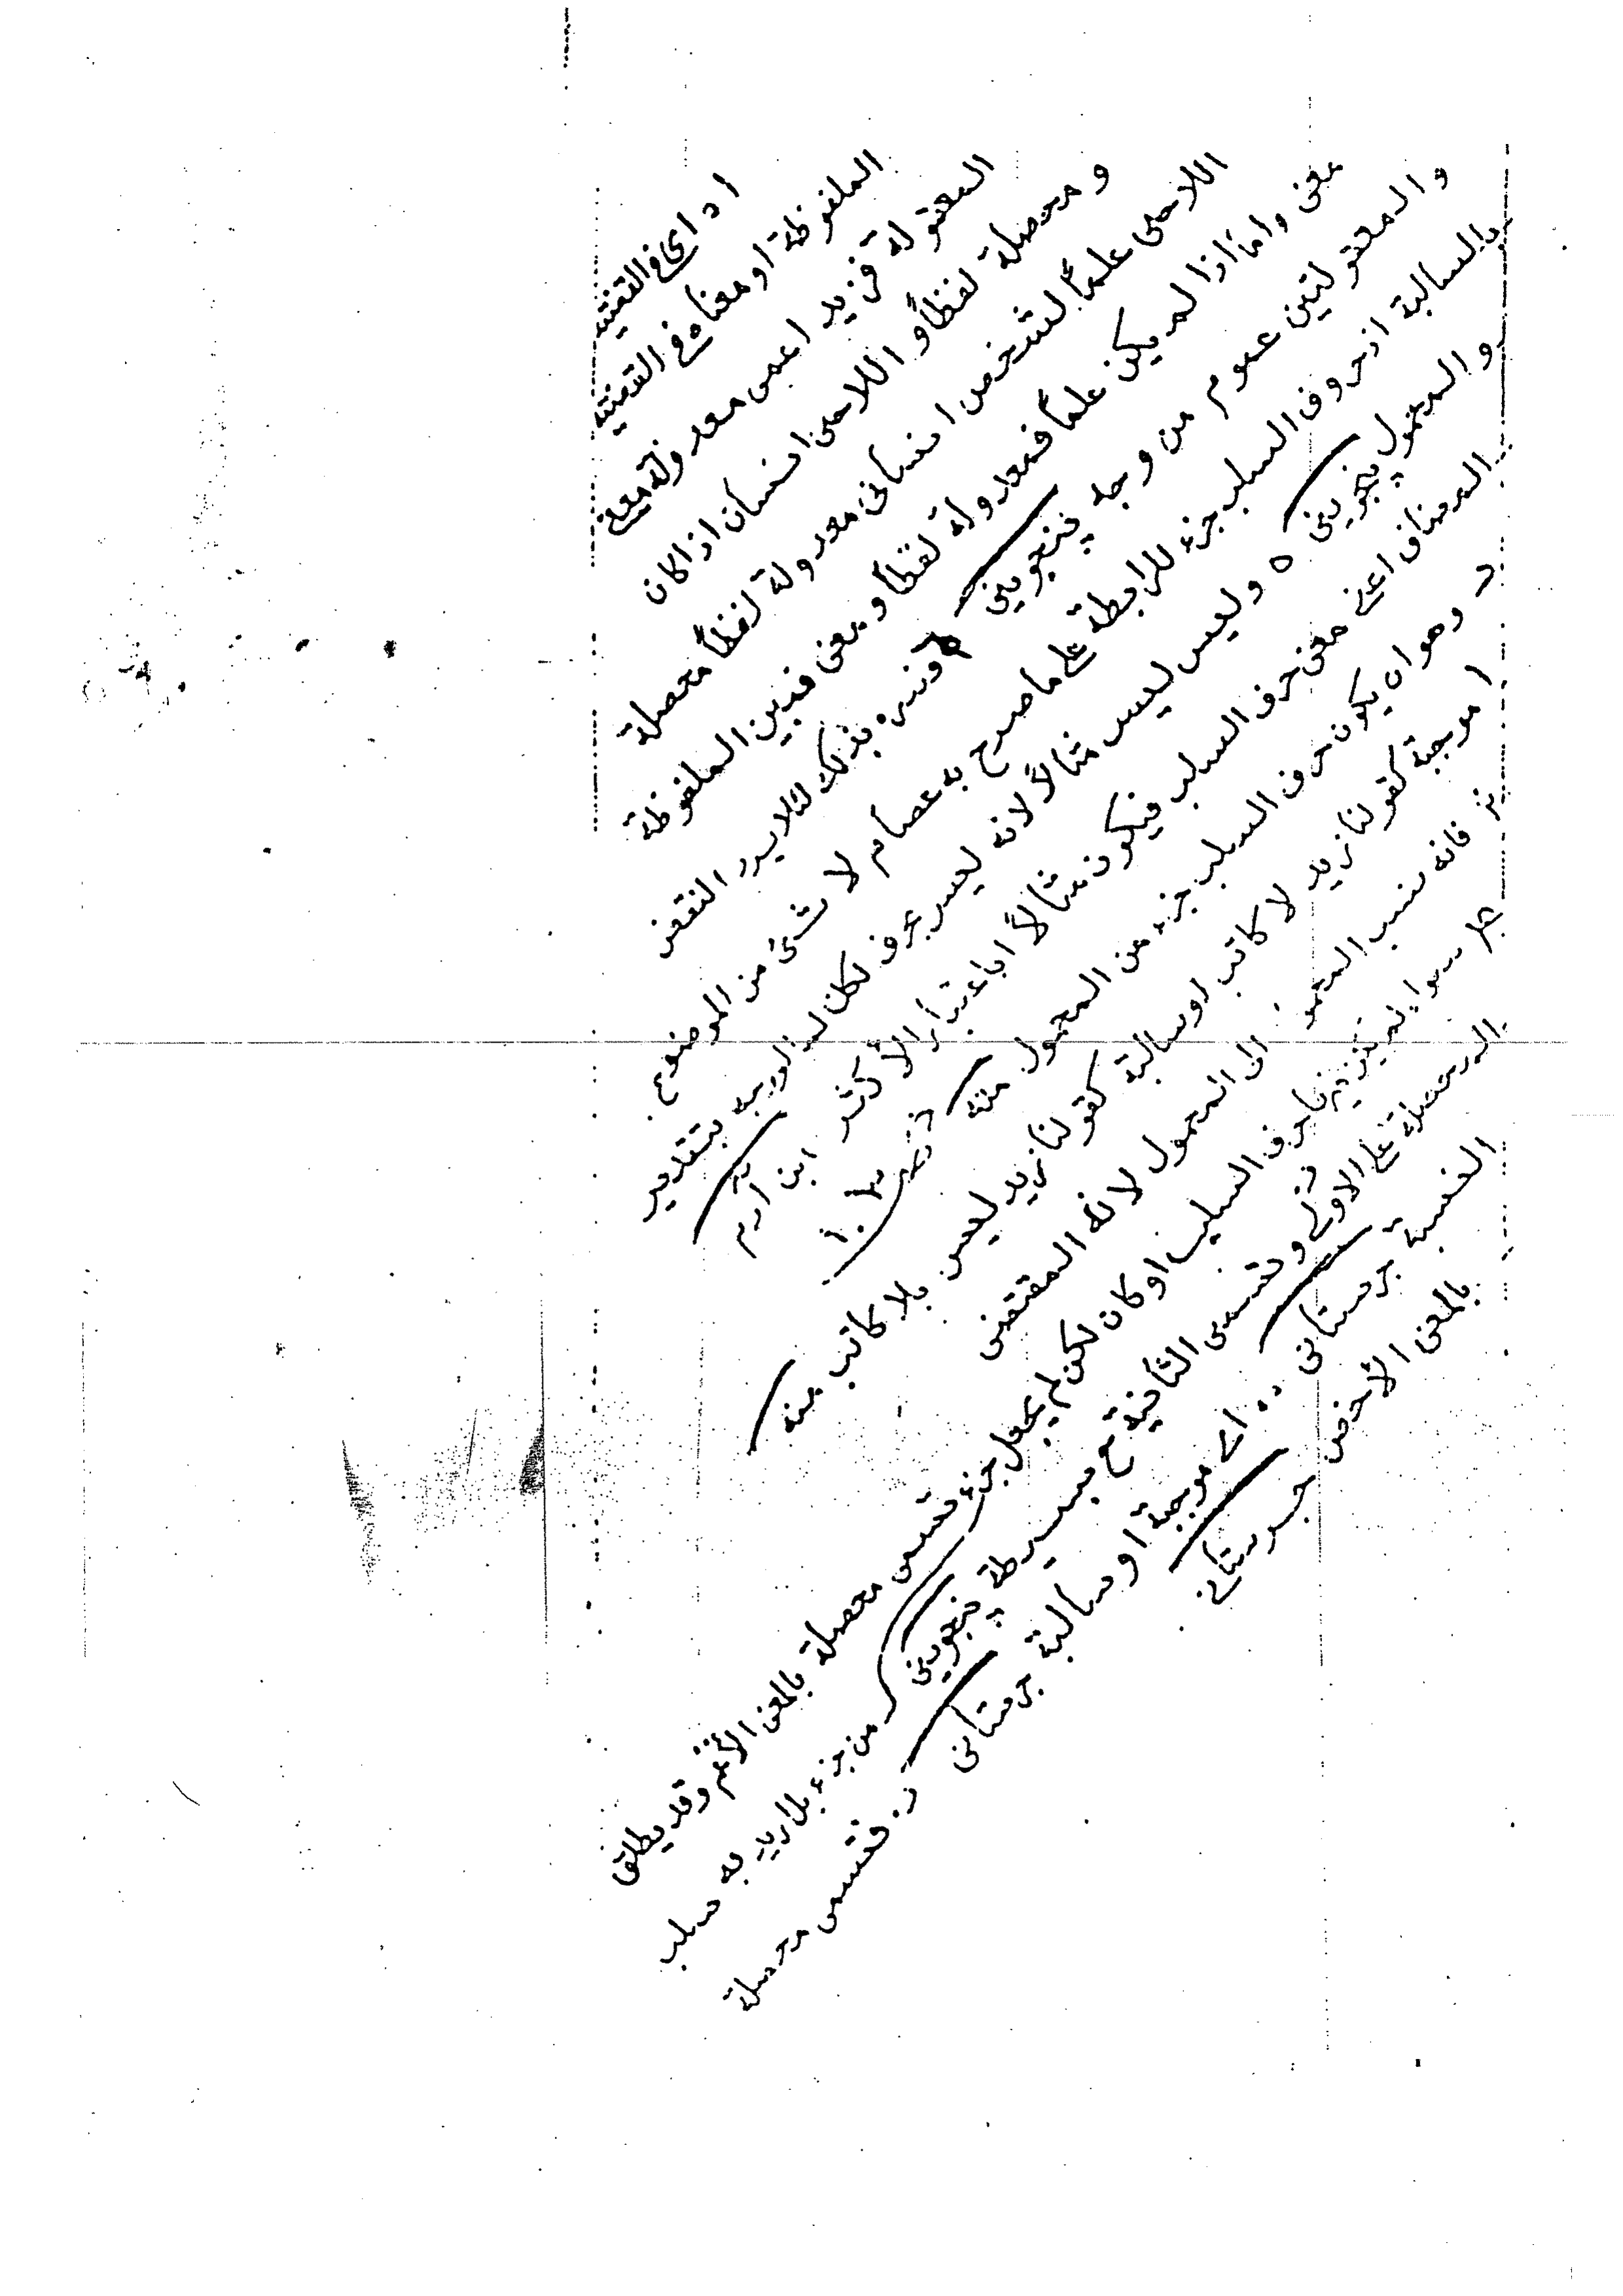 اد اى فى القضية
الملفوظة او معناه فى القضية
المعقولة فزيد اعمى معدولة معنى
و محصلة لفظاً و اللاحى انسان اذا كان
اللاحى علماً لشخص انسانى معدولة لفظاً محصلة
معنى واما اذا لم يكن علماً فمعدولة لفظاً و معنى فبين الملفوظة
و المعقولتين عموم من وجه پنجوينى وفسره بذلك لئلا يرد النقض
بالسالبة اذ حروف السلب جزء للرابطة على ما صرح به عصام لا شئ من الموضوع
و المحمول پنجوينى ٥ وليس ليس مثالاً لانه ليس بحرف لكن بتقدير
المضاف اعنى معنى حرف السلب فيكون مثالاً باعتبار الأكثر ابن آدم
د وهو ان يكون حرف السلب جزء من المحمول منه
ا موجبة كقولنا زيد لا كاتب او سالبة كقولنا زيد ليس بلا كاتب منه
فانه نسب الى المحمول لانه المقتضى
سواء لم يكن حرف السلب او كان لكن لم يجعل جزء فتسمى محصلة بالمعنى الأعم وقد يطلق
المحصلة على الاولى و تسمى الثانية بسيطة پنجوينى من جزء بل اريد به سلب
النسبة جرستانى اى موجبة او سالبة جرستانى فتسمى محصلة
بالمعنى الأخص جرستانى